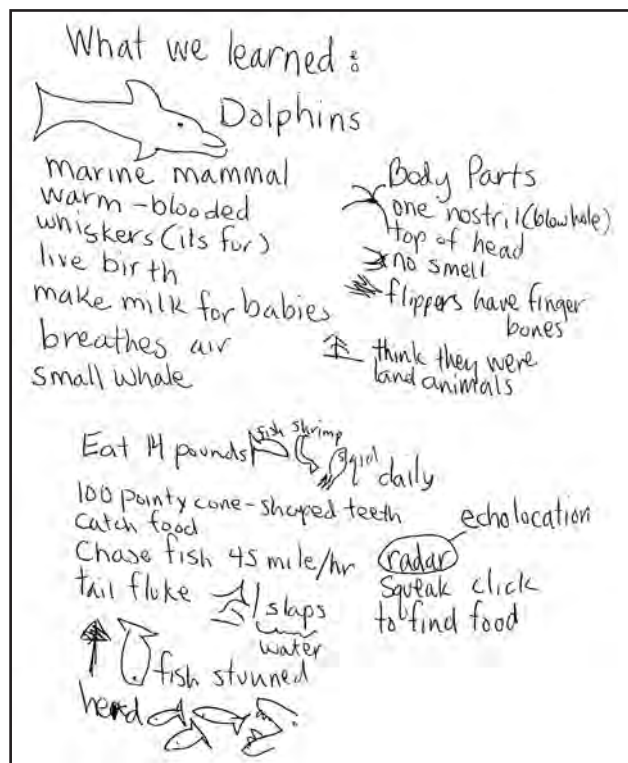 What we learned :
Dolphins
marine mammal
warm-blooded
whiskers (its fur)
live birth
make milk for babies
breathes air
small whale
Body Parts
one nostril (blowhole)
top of head
no smell
flippers have finger
bones
think they were
land animals
Eat 14 pounds fish shrimp squid daily
100 pointy cone-shaped teeth
catch food
Chase fish 45 mile/hr
tail fluke slaps
water
fish stunned
herd
echolocation
radar
squeak click
to find food